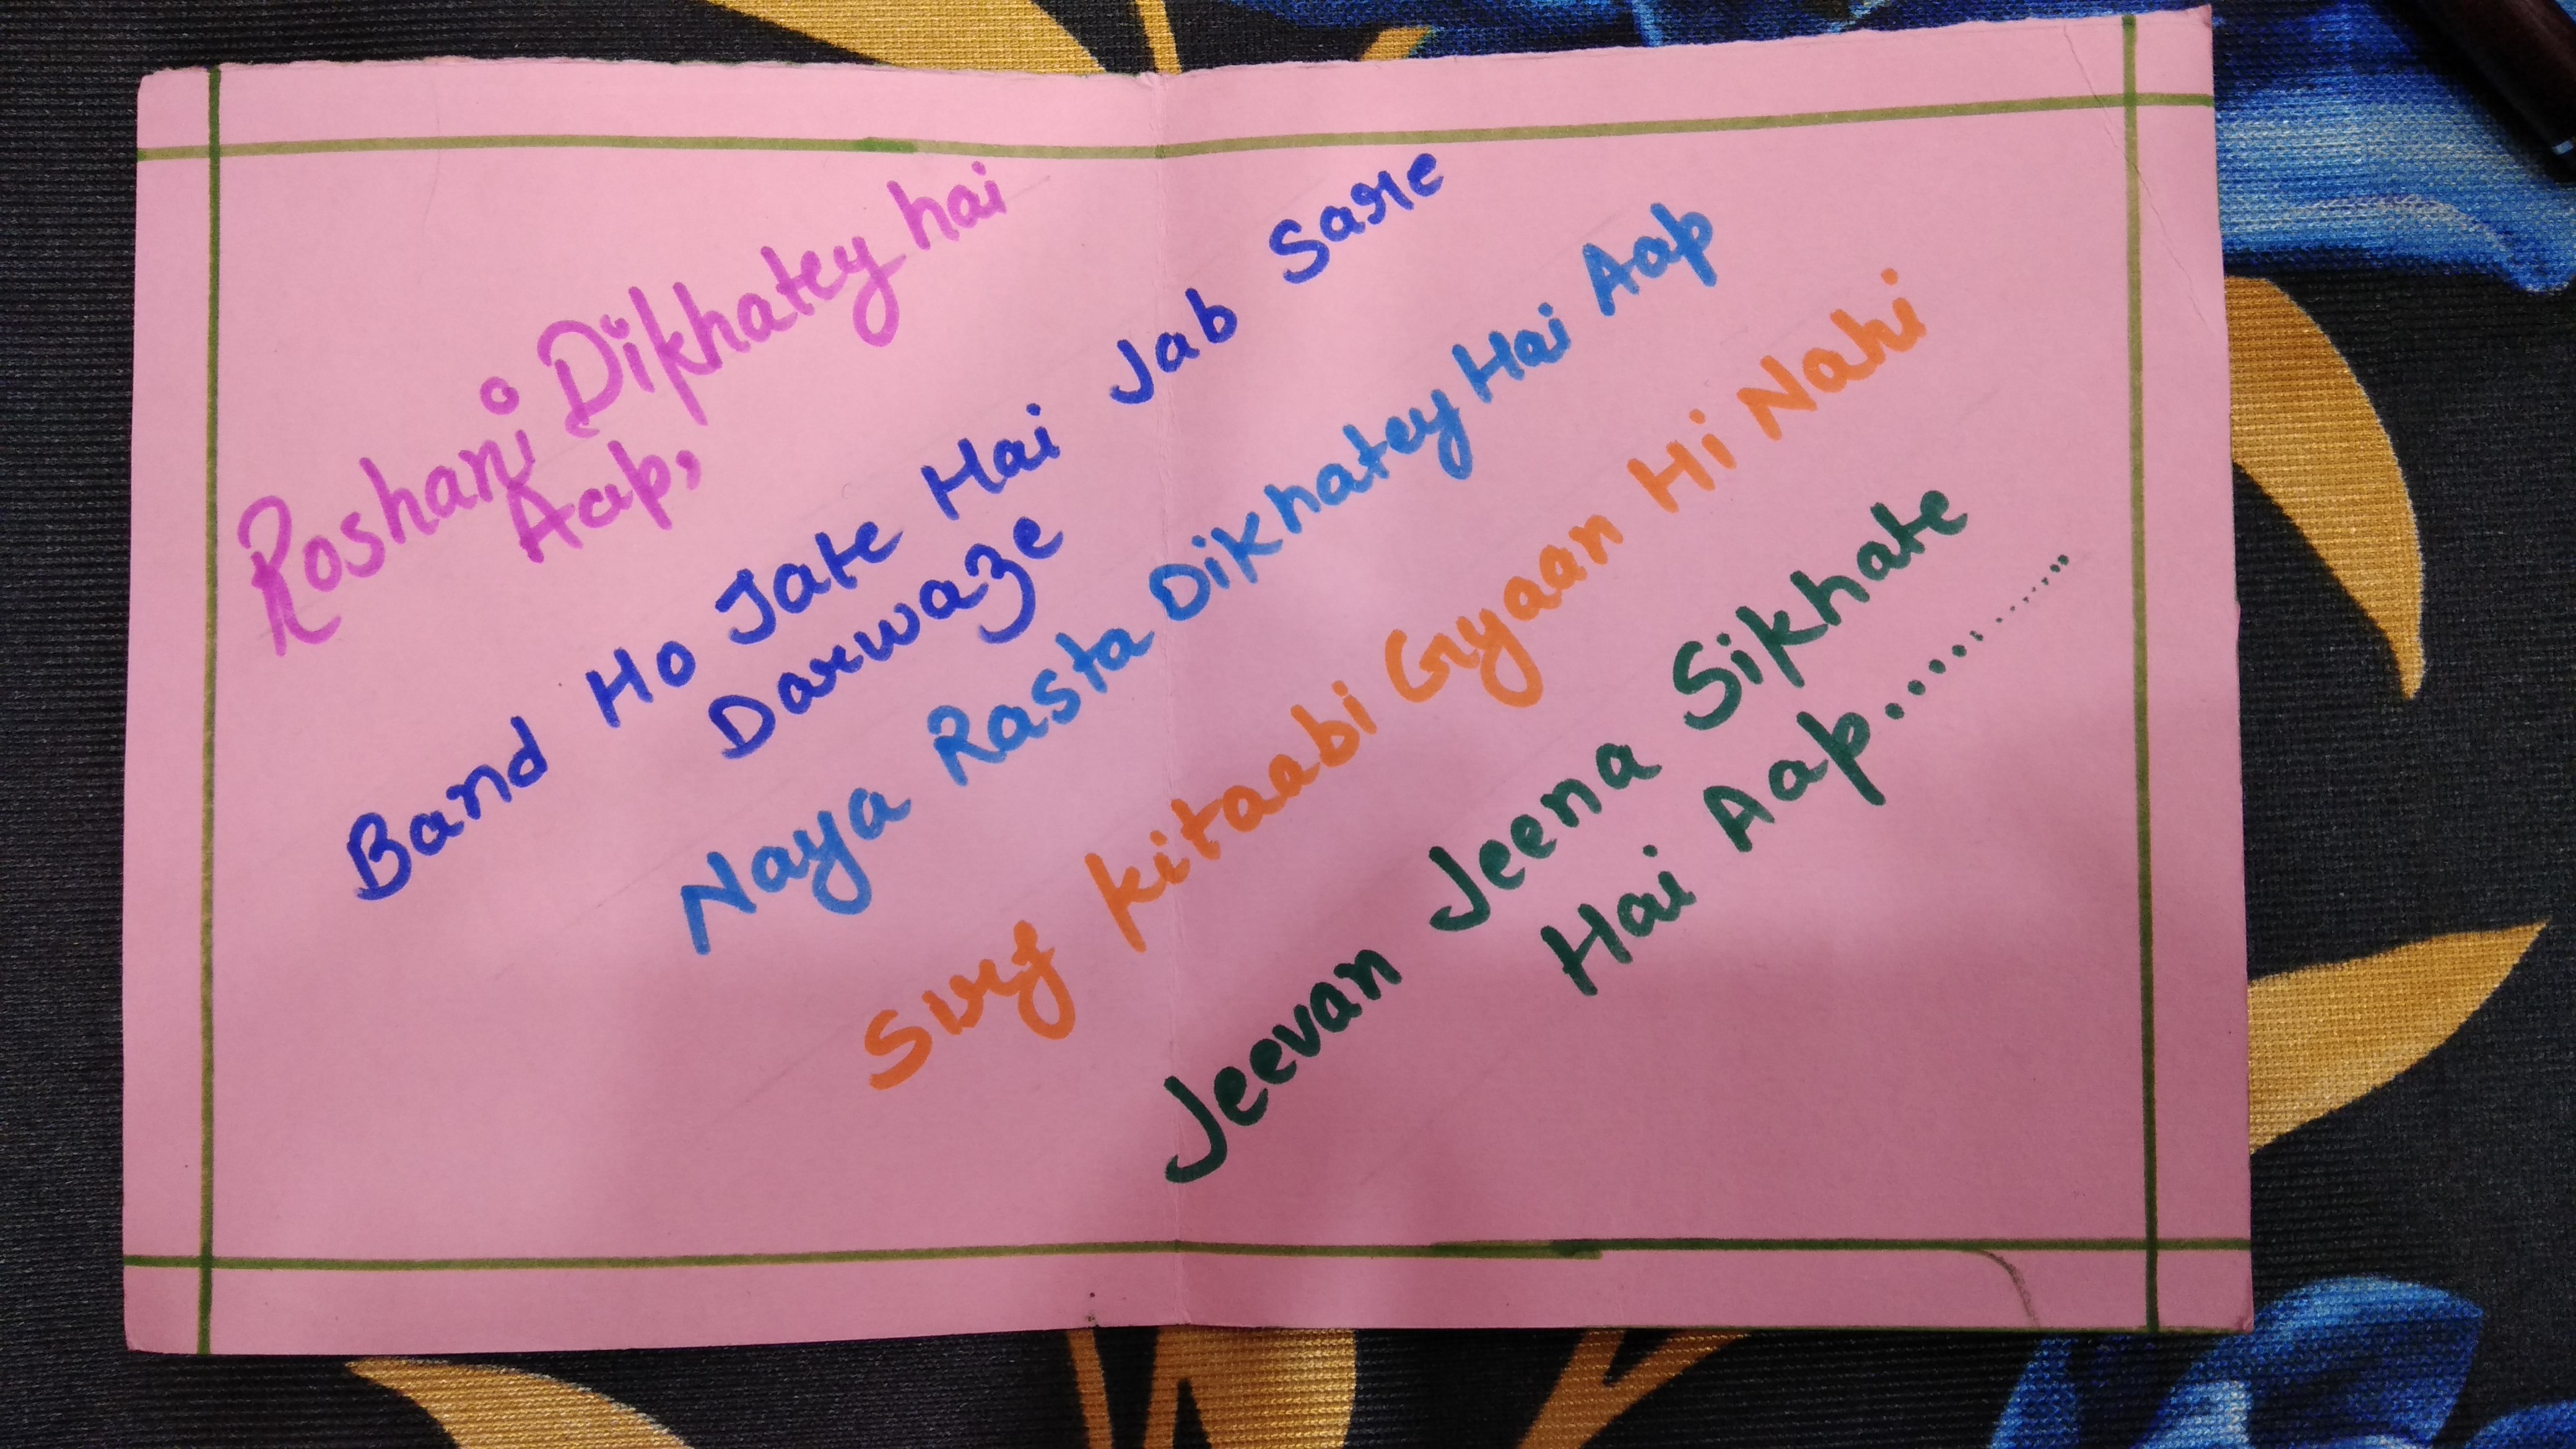 Roshani Dikhatey hai
Aap,
Band Ho Jate Hai Jab Sare
Darwaze
Naya Rasta Dikhatey Hai Aap
Sirf Kitaabi Gyaan Hi Nahi
Jeevan Jeena Sikhate
Hai Aap..............